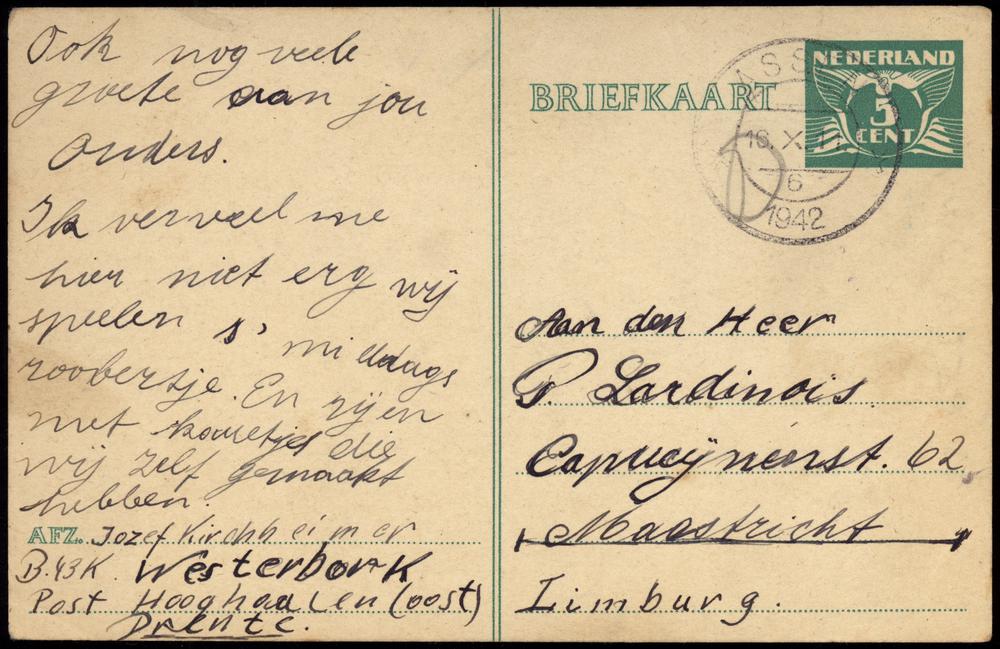 Ook nog veele
groete aan jou
Onders.
Ik verveel me
hier niet erg wij
speelen s' middags
roovertsje. En rijen
met karretjes die
wij zelf gemaakt
hebben.
AFZ. Jozef Kirchheimer
B.43K. Westerbork
Post Hooghaalen (oost)
Drente.
BRIEFKAART
NEDERLAND
5
CENT
ASS
16. X.
6
1942
Aan den Heer
P. Lardinois
Capucijnenst. 62
Maastricht
Limburg.